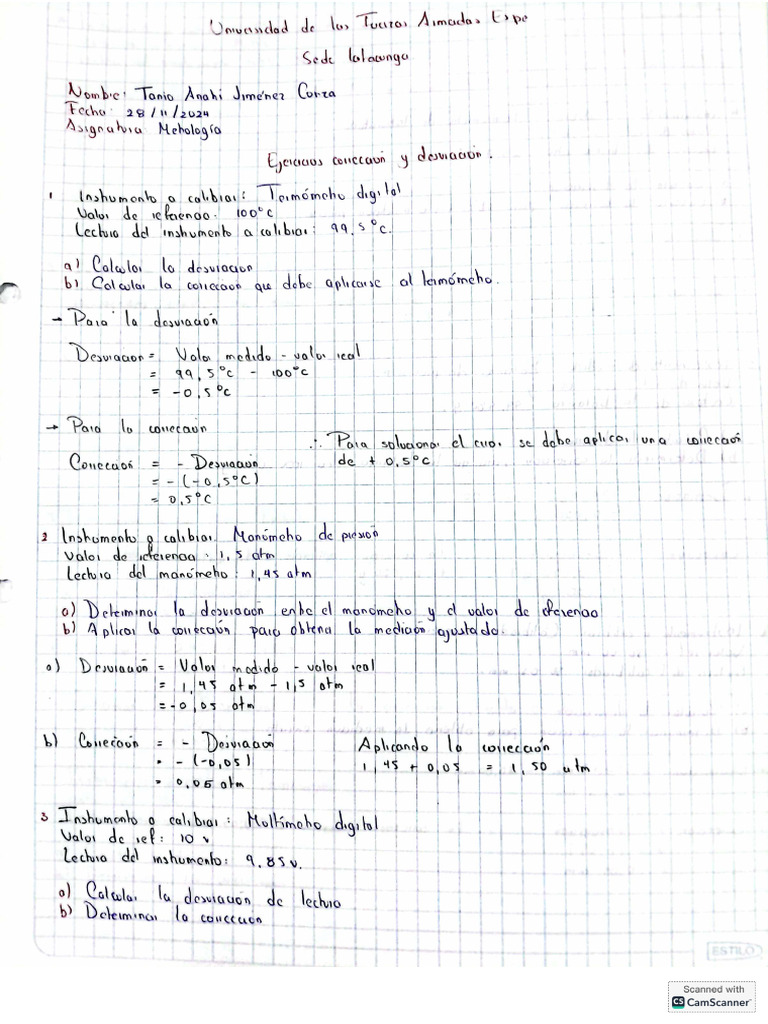 Universidad de las Fuerzas Armadas Espe
Sede Latacunga
Nombre: Tania Anahi Jiménez Corza
Fecha: 28/11/2024
Asignatura Metrología
Ejercicios corrección y desviación.
1 Instrumento a calibrar: Termómetro digital
Valor de referencia: 100°C
Lectura del instrumento a calibrar: 99,5°C.
a) Calcular la desviación
b) Calcular la corrección que debe aplicarse al termómetro.
→ Para la desviación
Desviación = Valor medido - valor real
= 99,5°C - 100°C
= -0,5°C
→ Para la corrección
∴ Para solucionar el error se debe aplicar una corrección
de + 0,5°C
Corrección = - Desviación
= - (-0,5°C)
= 0,5°C
2 Instrumento a calibrar Manómetro de presión
Valor de referencia: 1,5 atm
Lectura del manómetro: 1,45 atm
a) Determinar la desviación entre el manómetro y el valor de referencia
b) Aplicar la corrección para obtener la medición ajustada.
a) Desviación = Valor medido - valor real
= 1,45 atm - 1,5 atm
= -0,05 atm
b) Corrección = - Desviación Aplicando la corrección
= - (-0,05) 1,45 + 0,05 = 1,50 atm
= 0,05 atm
3 Instrumento a calibrar: Multímetro digital
Valor de ref: 10 v
Lectura del instrumento: 9.85v.
a) Calcular la desviación de lectura
b) Determinar la corrección
ESTILO
Scanned with
CS CamScanner